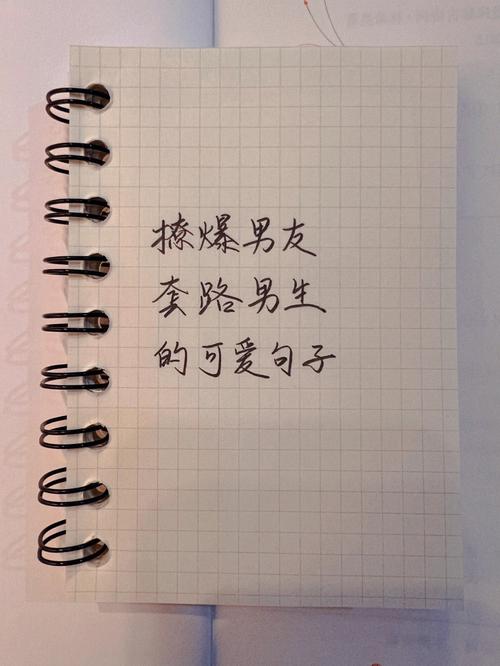 撩爆男友
套路男生
的可爱句子